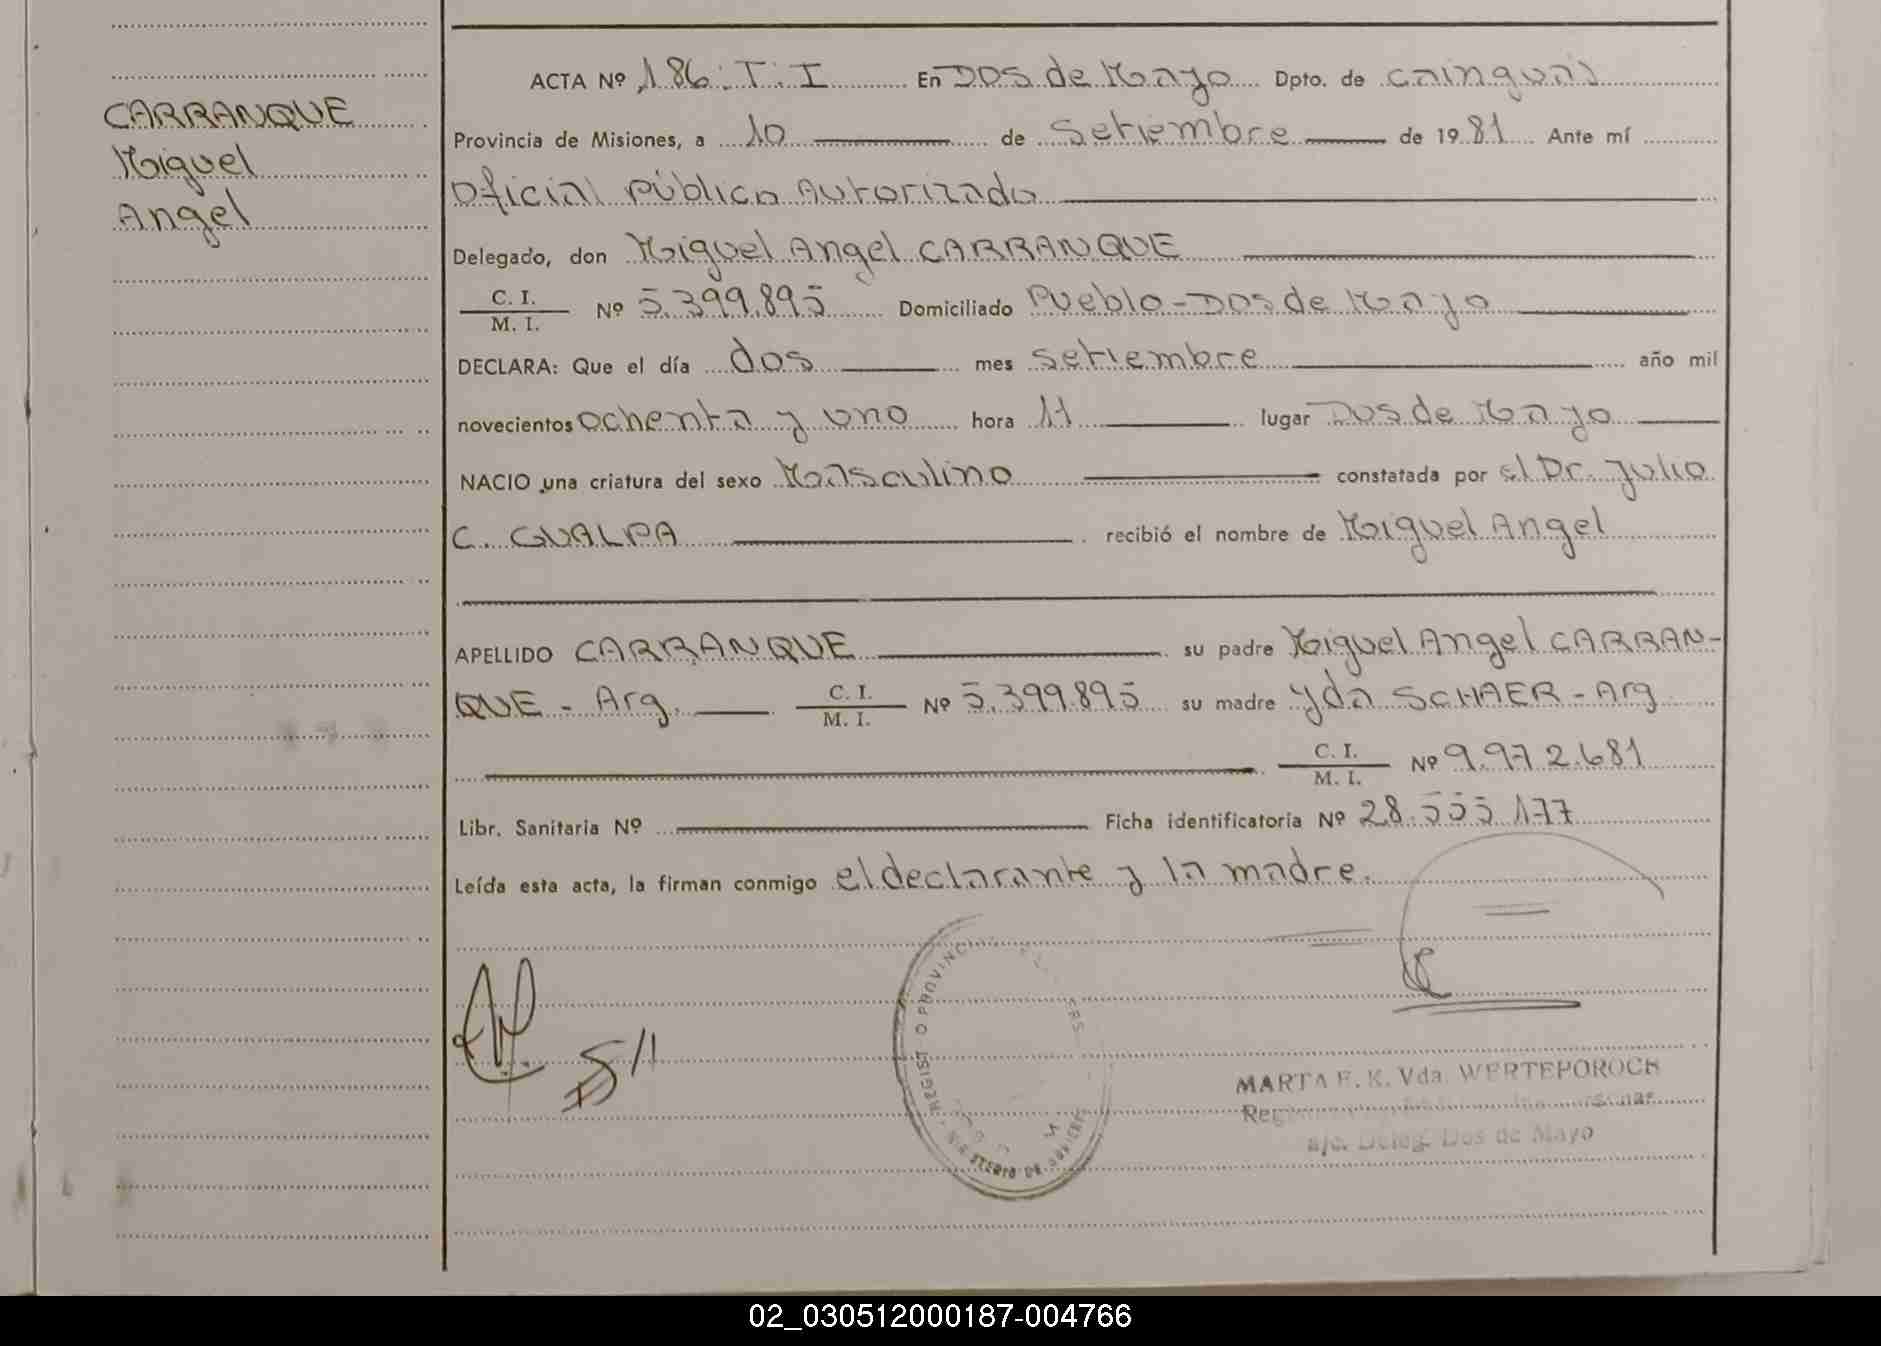 CARRANQUE
Miguel
Angel
ACTA Nº 186. T. I En Dos de Mayo Dpto. de cainguás
Provincia de Misiones, a 10 de Setiembre de 1981 Ante mí
Oficial Público Autorizado
Delegado, don Miguel Angel CARRANQUE
C. I.
M. I. Nº 5.399.895 Domiciliado Pueblo - Dos de Mayo
DECLARA: Que el día dos mes Setiembre año mil
novecientos ochenta y uno hora 11 lugar Dos de Mayo
NACIO una criatura del sexo Masculino constatada por el Dr. Julio
C. GUALPA recibió el nombre de Miguel Angel
APELLIDO CARRANQUE su padre Miguel Angel CARRAN-
QUE - Arg. C. I.
M. I. Nº 5.399.895 su madre Yda SCHAER - Arg
C. I.
M. I. Nº 9.972.681
Libr. Sanitaria Nº Ficha identificatoria Nº 28.555.177
Leída esta acta, la firman conmigo el declarante y la madre.
MARTA E. K. Vda. WERTEPOROCH
a/c. Deleg. Dos de Mayo
02_030512000187-004766